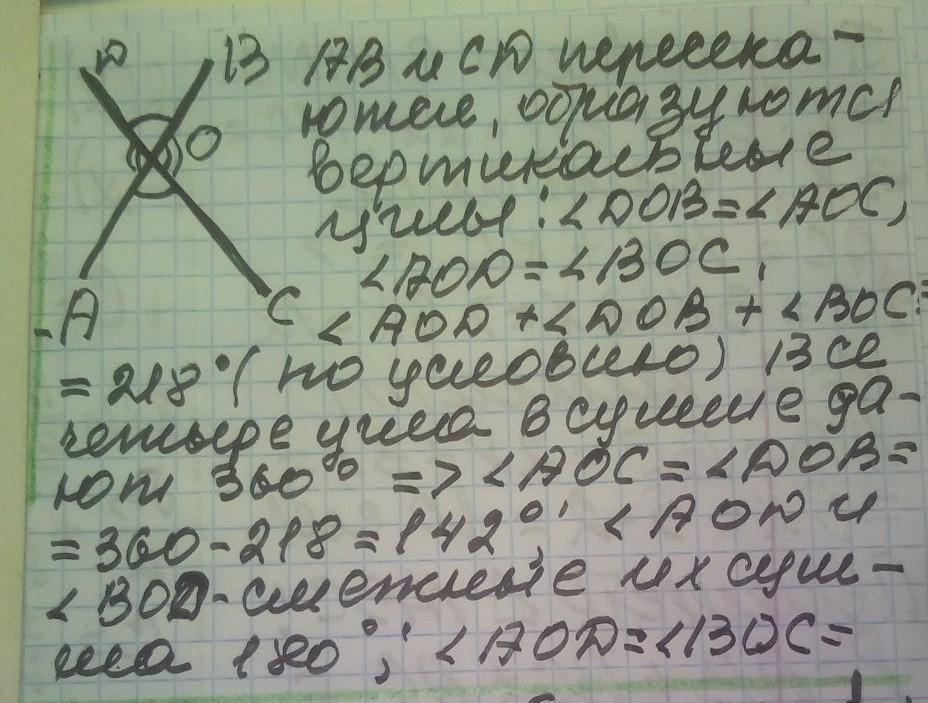 D B AB и CD пересека-
ются, образуются
O вертикальные
углы: <DOB=<AOC,
<AOD=<BOC,
A C <AOD+<DOB+<BOC=
=218°(по условию) Все
четыре угла в сумме да-
ют 360° => <AOC=<DOB=
=360-218=142°; <AOD и
<BOD-смежные их сум-
ма 180°; <AOD=<BOC=